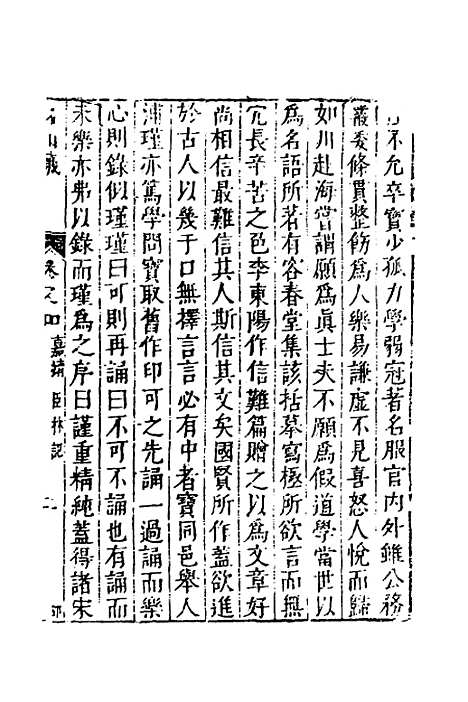 不允卒寶少孤力學弱冠著名服官內外雖公務
叢委條貫整飭爲人樂易謙虛不見喜怒人悅而歸
如川赴海嘗謂願爲眞士夫不願爲假道學當世以
爲名語所著有容春堂集該括摹寫極所欲言而無
冗長辛苦之色李東陽作信難篇贈之以爲文章好
尚相信最難信其人斯信其文矣國賢所作蓋欲進
於古人以幾于口無擇言言必有中者寶同邑舉人
浦瑾亦篤學問寶取舊作印可之先誦一過誦而樂
心則錄似瑾瑾曰可則再誦曰不可不誦也有誦而
未樂亦弗以錄而瑾爲之序曰謹重精純蓋得諸宋
名山藏 卷之 嘉靖 臣林記 二